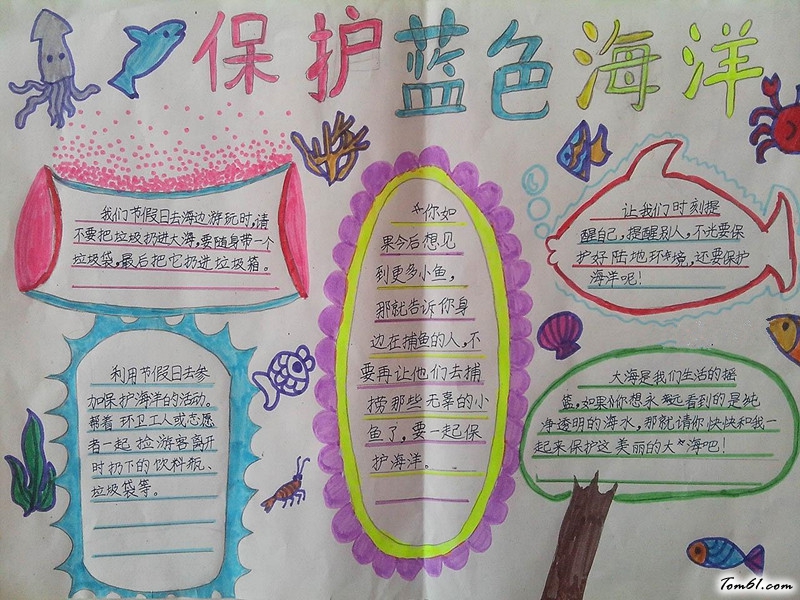 保护蓝色海洋
我们节假日去海边游玩时,请
不要把垃圾扔进大海,要随身带一个
垃圾袋,最后把它扔进垃圾箱。
利用节假日去参
加保护海洋的活动。
帮着环卫工人或志愿
者一起捡游客离开
时扔下的饮料瓶、
垃圾袋等。
你如
果今后想见
到更多小鱼,
那就告诉你身
边在捕鱼的人,不
要再让他们去捕
捞那些无辜的小
鱼了,要一起保
护海洋。
让我们时刻提
醒自己,提醒别人,不光要保
护好陆地环境,还要保护
海洋呢!
大海是我们生活的摇
篮,如果你想永远看到的是纯
净透明的海水,那就请你快快和我一
起来保护这美丽的大海吧!
Tom61.com